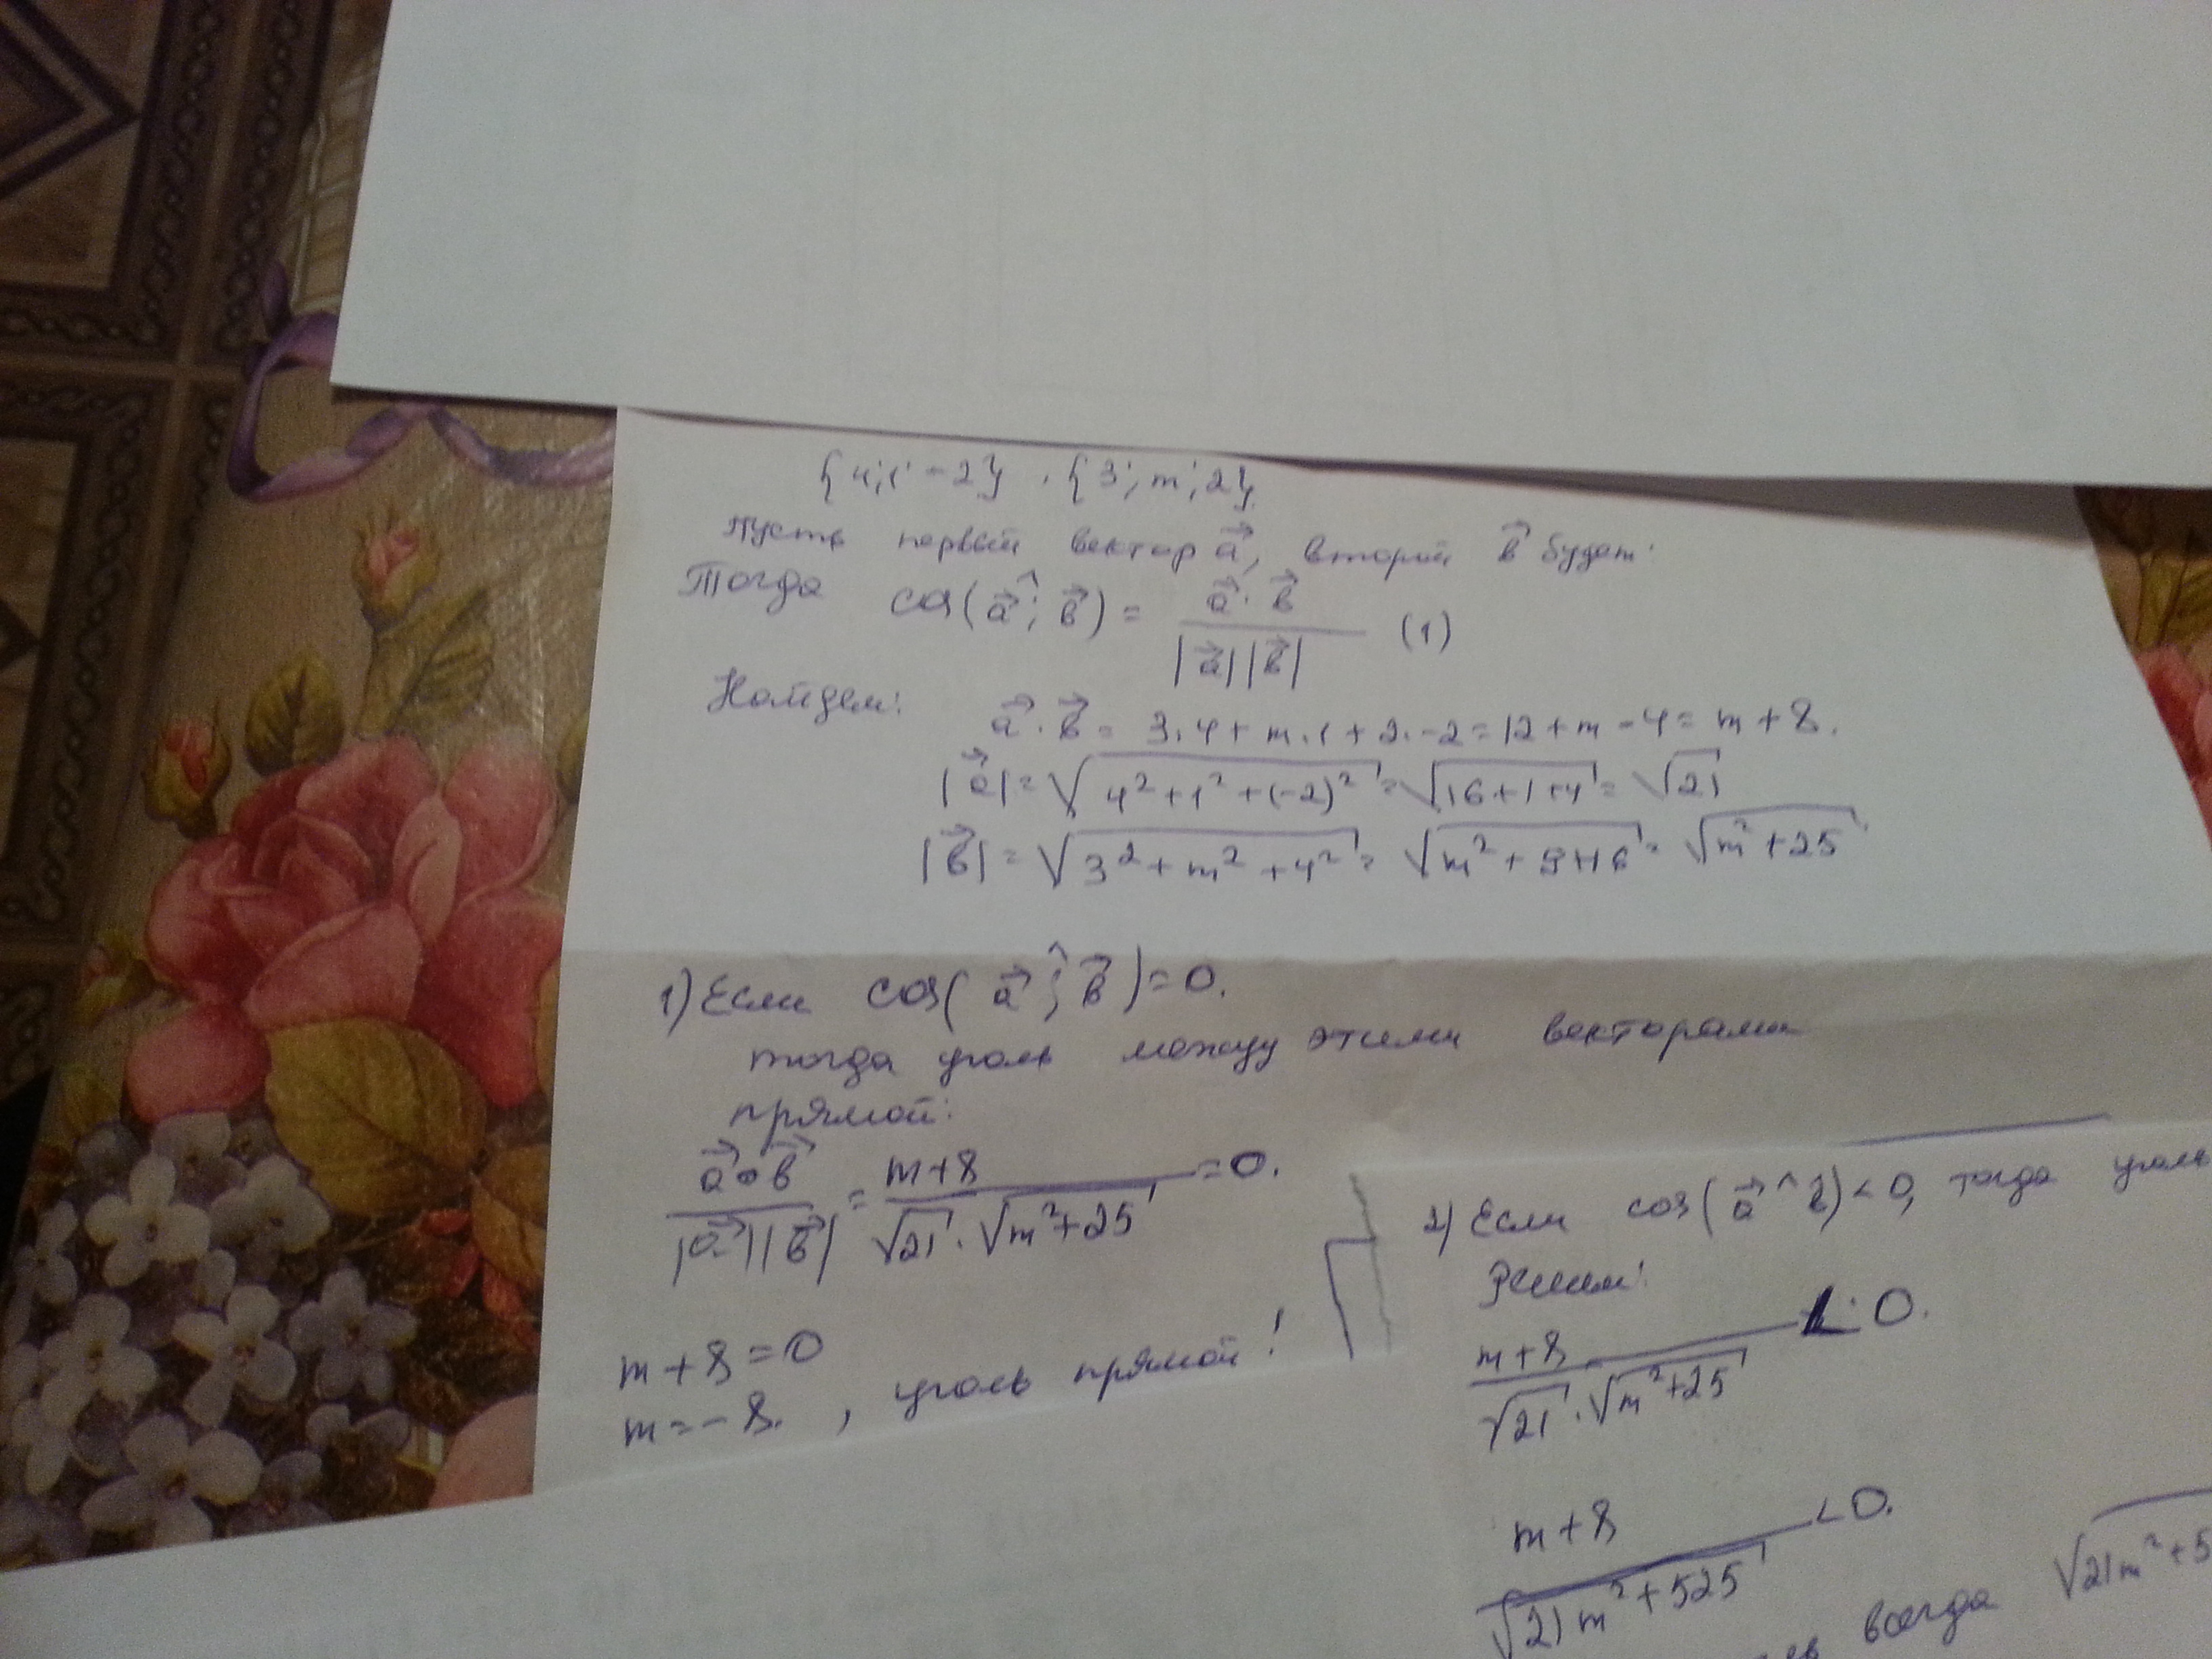 {4;1;-2} · {3; m; 2}.
Пусть первый вектор a⃗, второй b⃗ будет:
Тогда cos(a⃗ ^; b⃗) = (a⃗ · b⃗) / (|a⃗||b⃗|) (1)
Найдем:
a⃗ · b⃗ = 3.4 + m.1 + 2.-2 = 12 + m - 4 = m + 8.
|a⃗| = √(4² + 1² + (-2)²) = √(16+1+4) = √21
|b⃗| = √(3² + m² + 4²) = √(m² + 9+16) = √(m² + 25)
1) Если cos(a⃗ ^; b⃗) = 0.
тогда уголь между этими векторами
прямой:
(a⃗ ∘ b⃗) / (|a⃗||b⃗|) = (m+8) / (√21 · √(m²+25)) = 0.
m + 8 = 0
m = -8. , уголь прямой!
2) Если cos(a⃗ ^ b) < 0, тогда уголь
Решим:
(m+8) / (√21 · √(m²+25)) < 0.
(m + 8) / √(21m² + 525) < 0.
всегда √21m² + 5